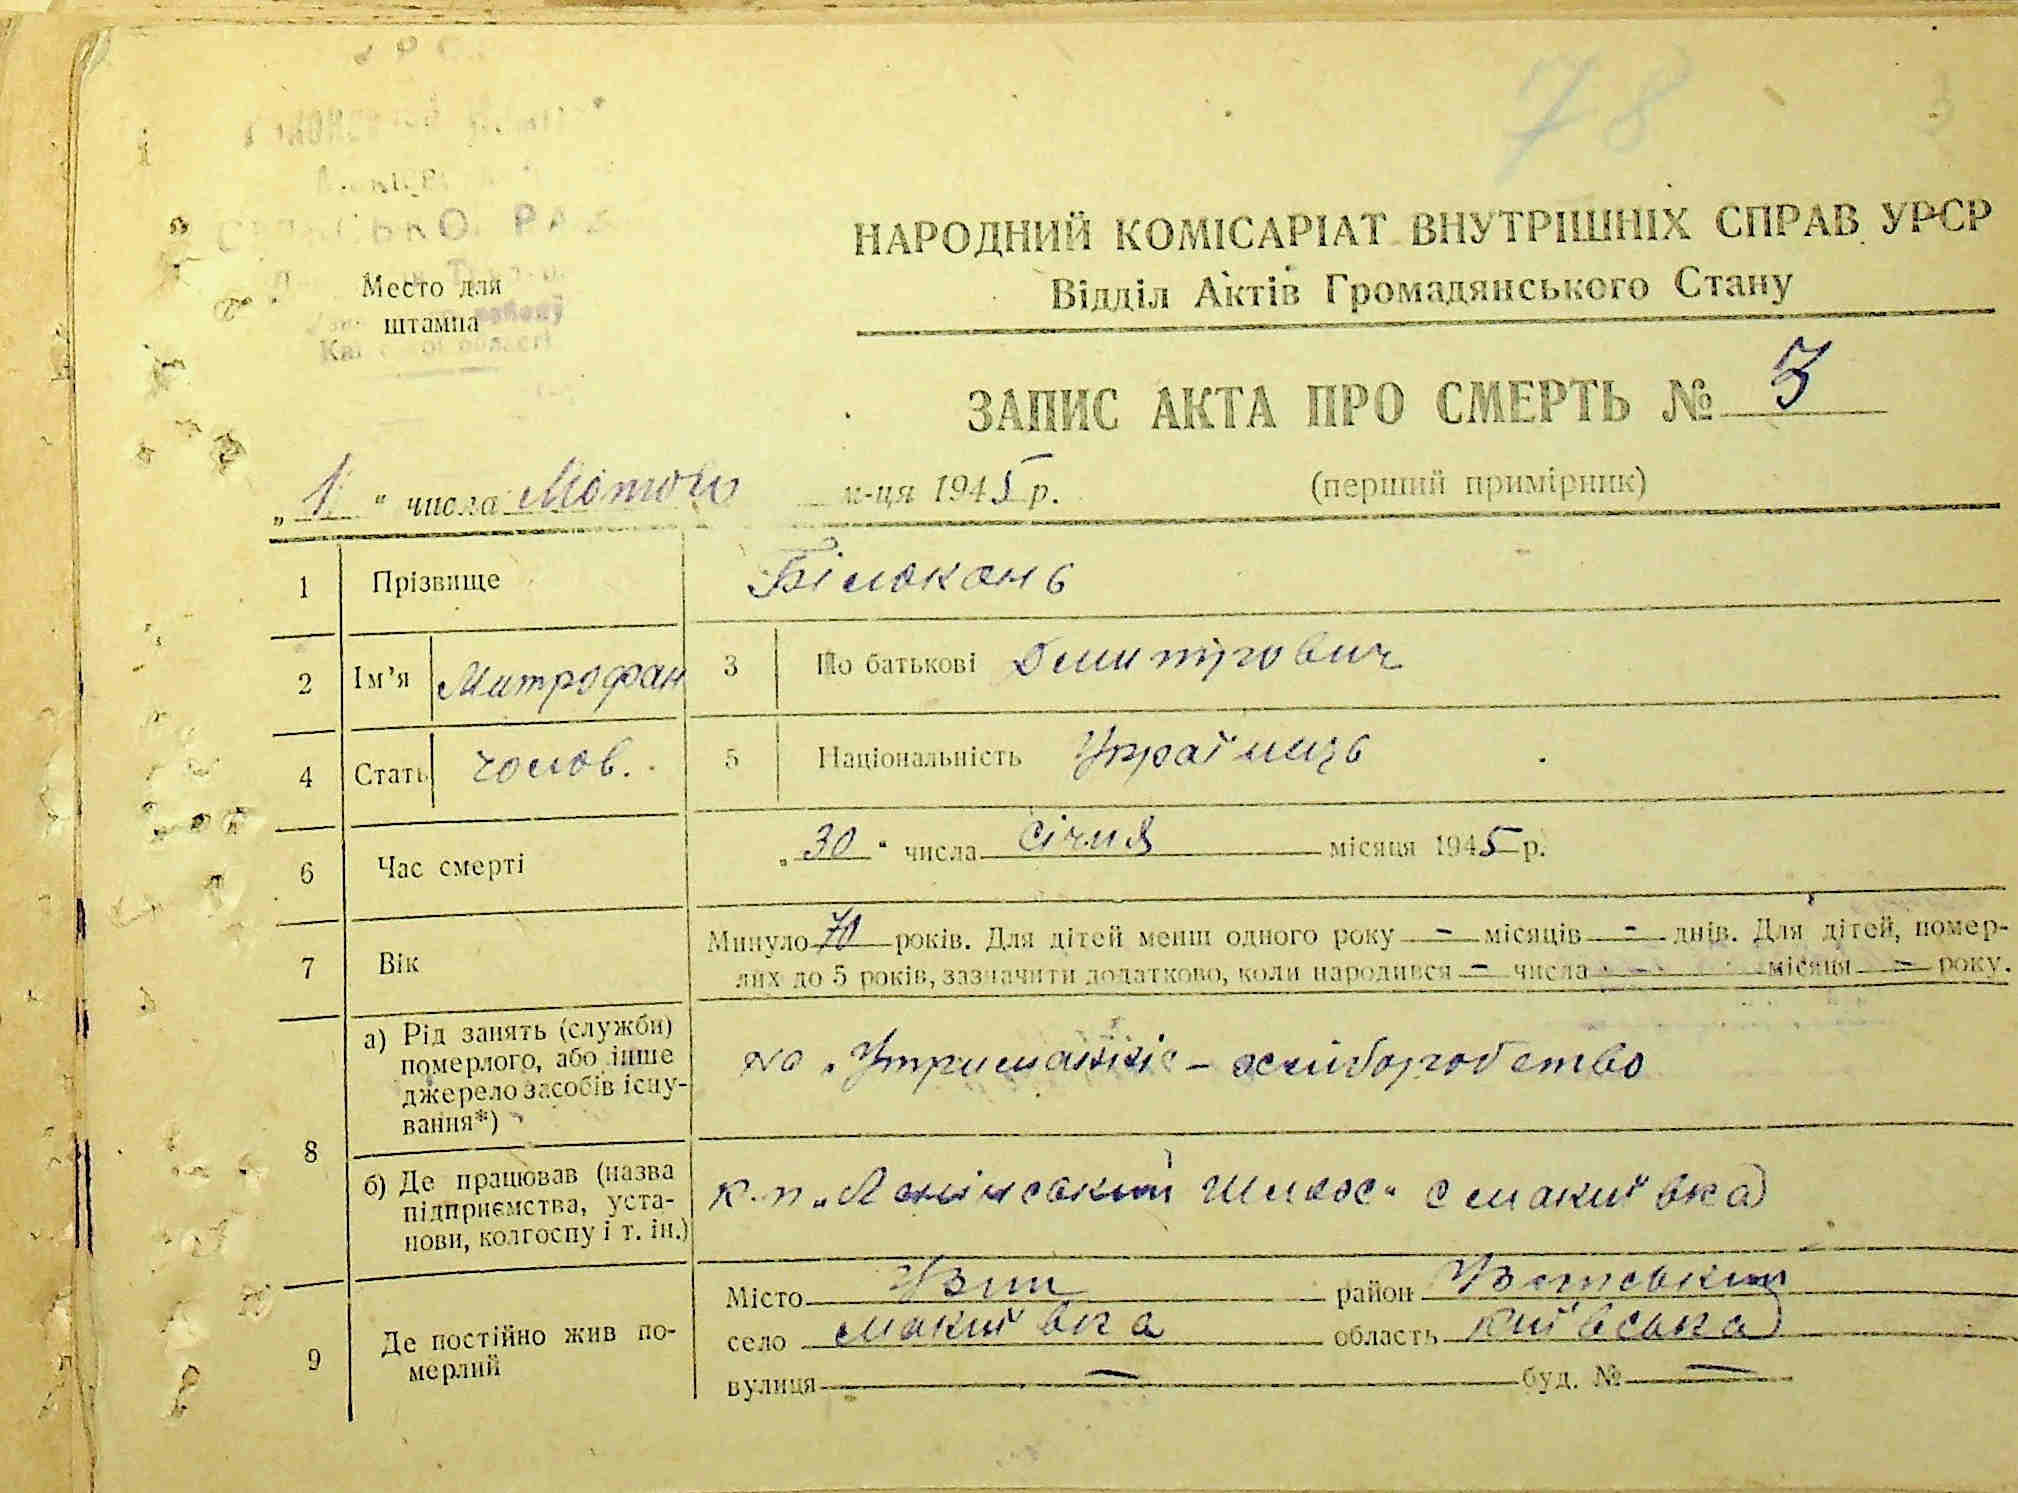 78
Место для
штампа
НАРОДНИЙ КОМІСАРІАТ ВНУТРІШНІХ СПРАВ УРСР
Відділ Актів Громадянського Стану
ЗАПИС АКТА ПРО СМЕРТЬ № 3
„1“ числа Лютого м-ця 1945 р.
(перший примірник)
1 Прізвище Білокань
2 Ім’я Митрофан 3 По батькові Дмитрович
4 Стать чолов. 5 Національність Українць
6 Час смерті „30“ числа Січня місяця 1945 р.
7 Вік Минуло 70 років. Для дітей менш одного року — місяців — днів. Для дітей, помер-
лих до 5 років, зазначити додатково, коли народився — числа — місяця — року.
8 а) Рід занять (служби)
померлого, або інше
джерело засобів існу-
вання*)
на Утриманні – хліборобство
б) Де працював (назва
підприємства, уста-
нови, колгоспу і т. ін.)
к-п „Ленінський Шлях“ с Макиївка
9 Де постійно жив по-
мерлий
Місто Узин район Узинський
село Макиївка область Київська
вулиця — буд. № —